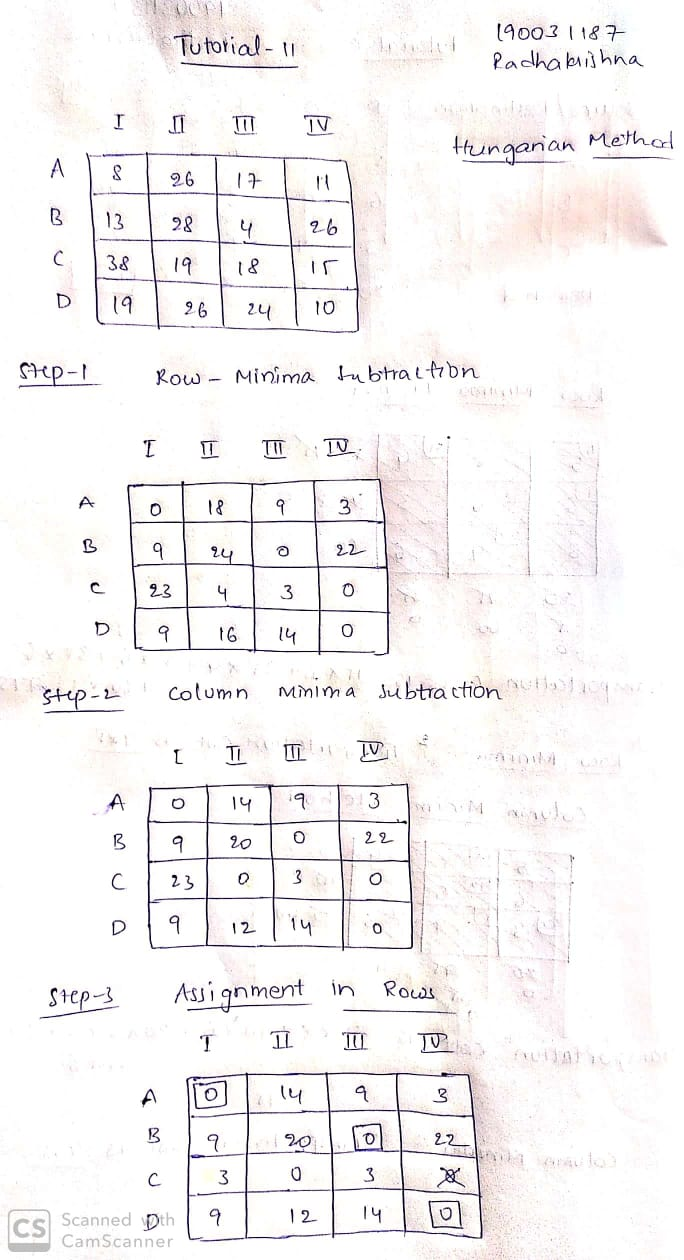 Tutorial-11
190031187
Radhakrishna
Hungarian Method
I II III IV
A 8 26 17 11
B 13 28 4 26
C 38 19 18 15
D 19 26 24 10
Step-1 Row - Minima Subtraction
I II III IV
A 0 18 9 3
B 9 24 0 22
C 23 4 3 0
D 9 16 14 0
Step-2 Column Minima Subtraction
I II III IV
A 0 14 9 3
B 9 20 0 22
C 23 0 3 0
D 9 12 14 0
Step-3 Assignment in Rows
I II III IV
A 0 14 9 3
B 9 20 0 22
C 3 0 3 0
D 9 12 14 0
CS Scanned with
CamScanner